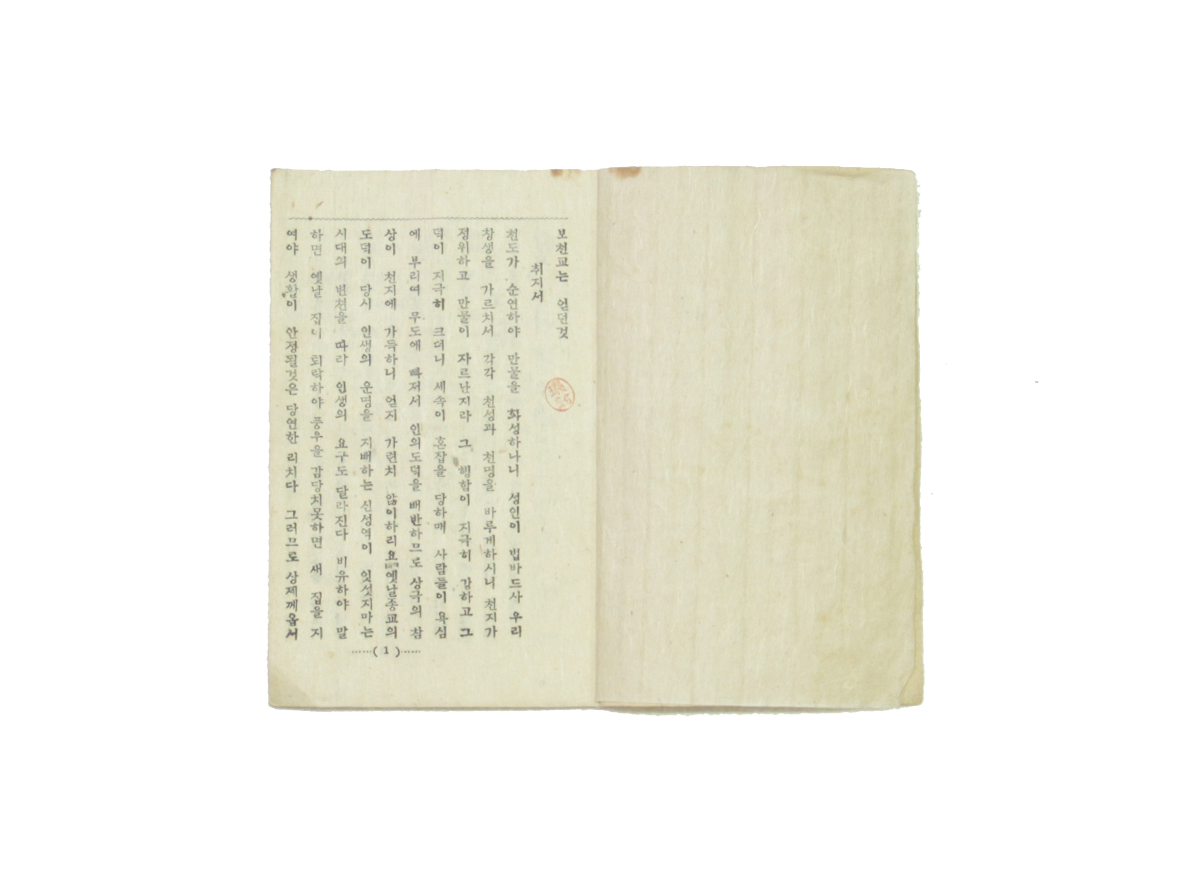 보천교는 얻던것
취지서
천도가 순연하야 만물을 화성하나니 성인이 법바드사 우리
창생을 가르치서 각각 천성과 천명을 바루게하시니 천지가
정위하고 만물이 자르난지라 그 행함이 지극히 강하고 그
덕이 지극히 크더니 세속이 혼잡을 당하매 사람들이 욕심
에 부리여 무도에 빠저서 인의도덕을 배반하므로 상극의 참
상이 천지에 가득하니 얻지 가련치 않이하리요 옛날종교의
도덕이 당시 인생의 운명을 지배하는 신성역이 잇섯지마는
시대의 변천을 따라 인생의 요구도 달라진다 비유하야 말
하면 옛날 집니 퇴락하야 풍우을 감당치못하면 새 집을 지
여야 생활이 안정될것은 당연한 리치다 그러므로 상제께옵서
……( 1 )……